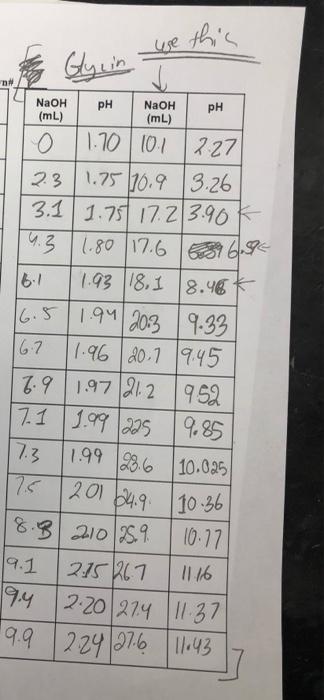 Glycin use this
n#
NaOH (mL) pH NaOH (mL) pH
0 1.70 10.1 2.27
2.3 1.75 10.9 3.26
3.1 1.75 17.2 3.90
4.3 1.80 17.6 6.59
6.1 1.93 18.1 8.46
6.5 1.94 20.3 9.33
6.7 1.96 20.7 9.45
6.9 1.97 21.2 9.52
7.1 1.99 22.5 9.85
7.3 1.99 23.6 10.025
7.5 2.01 24.9 10.36
8.3 2.10 25.9 10.77
9.1 2.15 26.7 11.16
9.4 2.20 27.4 11.37
9.9 2.24 27.6 11.43